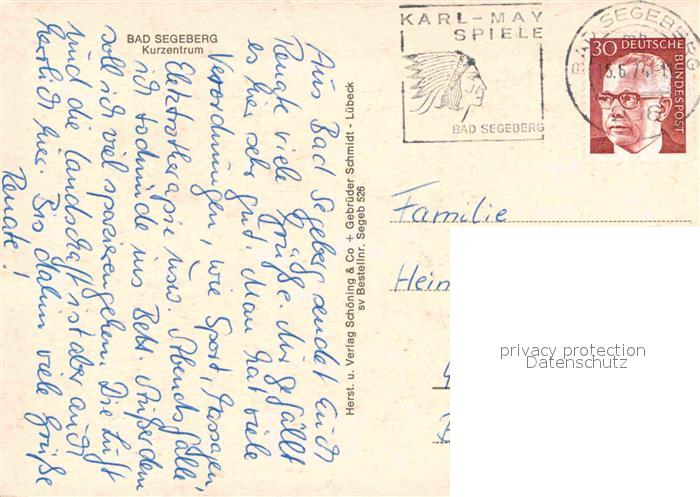 BAD SEGEBERG
Kurzentrum
Aus Bad Segeberg sendet Euch
Renate viele Grüße. Mir gefällt
es hier sehr gut. Man hat viele
Verordnungen, wie Sport, Massagen,
Elektrotherapie usw. Abends falle
ich todmüde ins Bett. Außerdem
soll ich viel spazierengehen. Die Luft
und die Landschaft ist aber auch
herrlich hier. Bis dahin viele Grüße
Renate!
Herst. u. Verlag Schöning & Co + Gebrüder Schmidt - Lübeck
sv Bestellnr. Segeb 526
KARL-MAY
SPIELE
BAD SEGEBERG
BAD SEGEBERG
30 DEUTSCHE
BUNDESPOST
Familie
Hein
privacy protection
Datenschutz